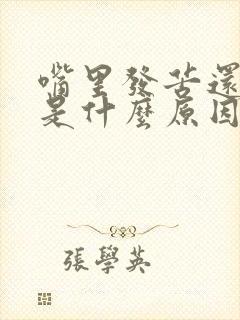 嘴里發苦還
是什麼原因
張學英